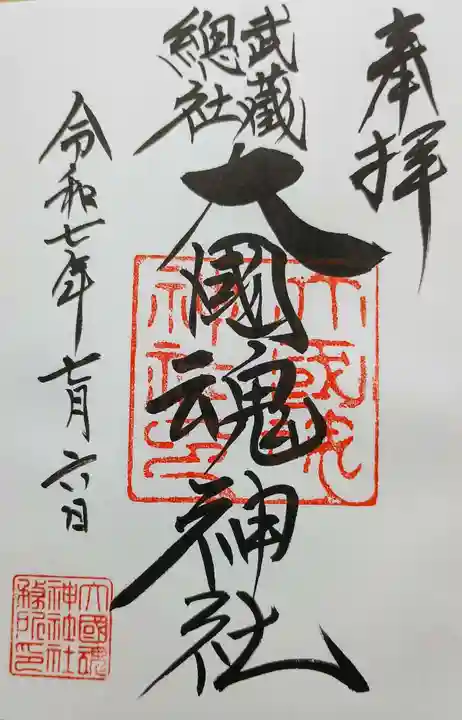 奉拝
武蔵
總社
大國魂神社
令和七年七月六日
大國魂
神社印
大國魂
神社社
務所印